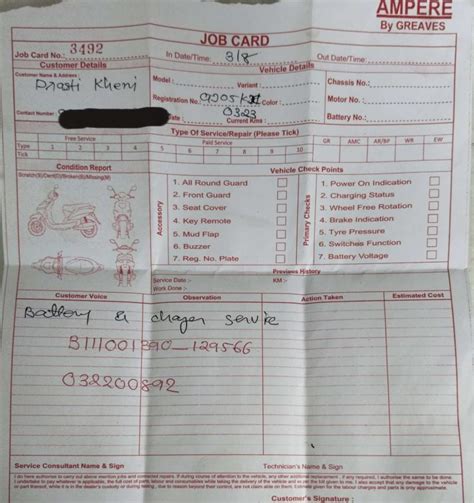 AMPERE
By GREAVES
JOB CARD
Job Card No.: 3492
In Date/Time: 3/8
Out Date/Time:
Customer Details
Vehicle Details
Customer Name & Address :
Kheni
Contact Number :
Model :
Variant :
Chassis No.:
Registration No.
Color :
Motor No. :
Date :
0323
Current Kms :
Battery No.:
Type Of Service/Repair (Please Tick)
Free Service
Paid Service
Type 1 2 3 4 5 6 7 8 9 10 11 12 13 GR AMC AR/BF WR EW
Tick
Condition Report
Scratch(S)/Dent(D)/Broken(B)/Missing(M)
Vehicle Check Points
Accessory
1. All Round Guard
2. Front Guard
3. Seat Cover
4. Key Remote
5. Mud Flap
6. Buzzer
7. Reg. No. Plate
Primary Checks
1. Power On Indication
2. Charging Status
3. Wheel Free Rotation
4. Brake Indication
5. Tyre Pressure
6. Switches Function
7. Battery Voltage
Previous History
Service Date :-
KM :-
Work Done :-
Customer Voice
Observation
Action Taken
Estimated Cost
Battery & chager service
B111001390_129566
032200892
Service Consultant Name & Sign
Technician's Name & Sign
Customer's Signature :